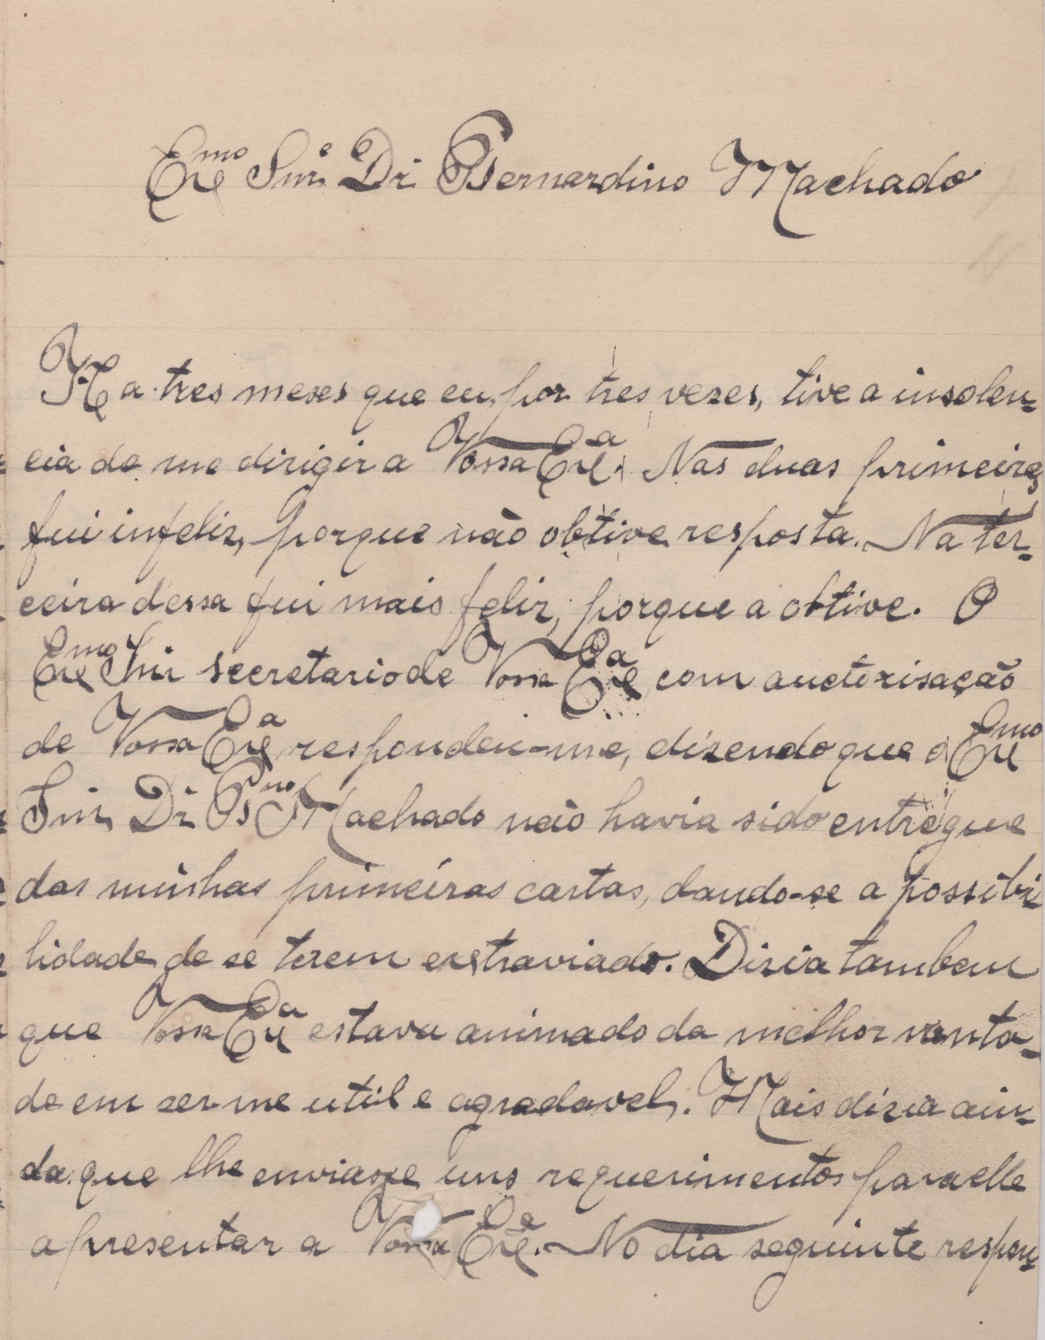 Exmo Snr Dr Bernardino Machado
Ha tres meses que eu, por tres vezes, tive a insolen-
cia de me dirigir a Vossa Exa. Nas duas primeiras
fui infeliz, porque não obtive resposta. Na ter-
ceira dessa fui mais feliz, porque a obtive. O
Exmo Snr secretario de Vossa Exa com auctorisação
de Vossa Exa respondeu-me, dizendo que o Exmo
Snr Dr Bno Machado não havia sido entregue
das minhas primeiras cartas, dando-se a possibi-
lidade de se terem extraviado. Dizia tambem
que Vossa Exa estava animado da melhor vonta-
de em ser-me util e agradavel. Mais dizia ain-
da que lhe enviasse uns requerimentos para elle
apresentar a Vossa Exa. No dia seguinte respon-